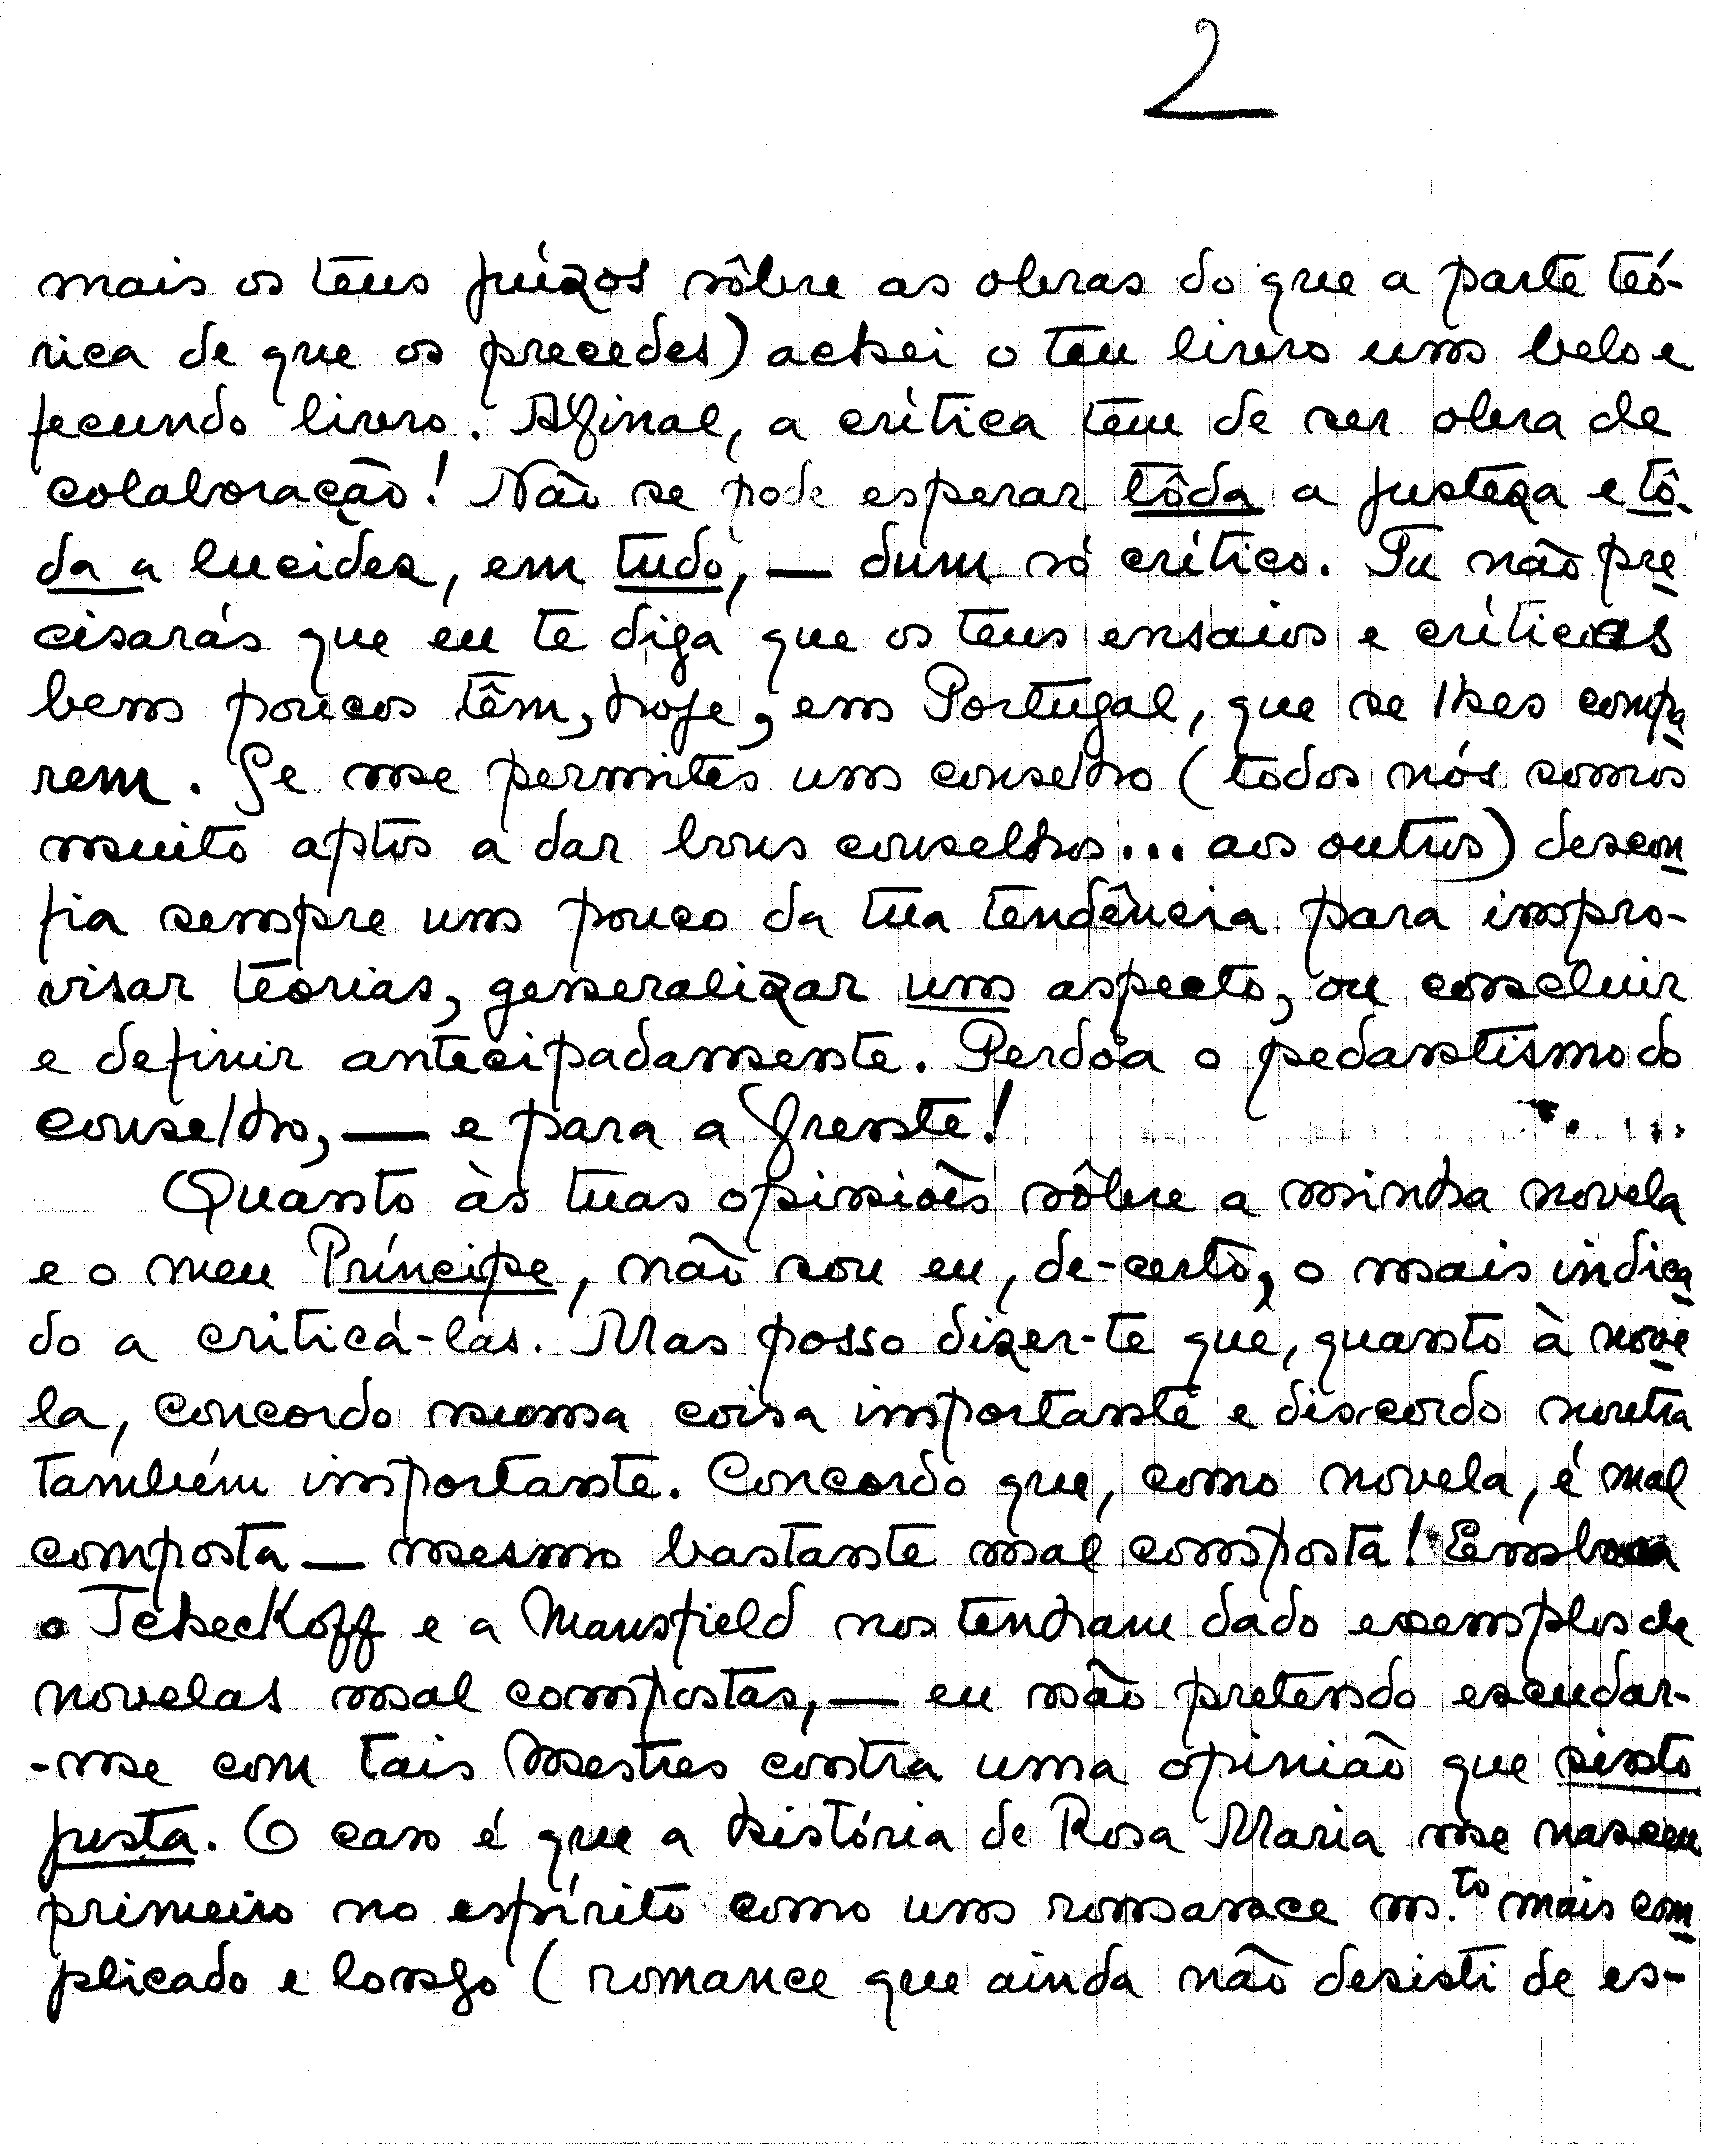 2
mais os teus juízos sôbre as obras do que a parte teó-
rica de que os precedes) achei o teu livro um belo e
fecundo livro. Afinal, a crítica tem de ser obra de
colaboração! Não se pode esperar tôda a justeza e tô-
da a lucidez, em tudo, — dum só crítico. Tu não pre-
cisarás que eu te diga que os teus ensaios e críticas
bem poucos têm, hoje, em Portugal, que se lhes compa-
rem. Se me permites um conselho (todos nós somos
muito aptos a dar bons conselhos... aos outros) descon-
fia sempre um pouco da tua tendência para impro-
visar teorias, generalizar um aspecto, ou concluir
e definir antecipadamente. Perdoa o pedantismo do
conselho, — e para a frente!
Quanto às tuas opiniões sôbre a minha novela
e o meu Príncipe, não sou eu, de-certo, o mais indica-
do a criticá-las. Mas posso dizer-te que, quanto à nove-
la, concordo numa coisa importante e discordo noutra
também importante. Concordo que, como novela, é mal
composta — mesmo bastante mal composta! Embora
o Tcheckoff e a Mansfield nos tenham dado exemplos de
novelas mal compostas, — eu não pretendo escudar-
-me com tais Mestres contra uma opinião que sinto
justa. O caso é que a história de Rosa Maria me nasceu
primeiro no espírito como um romance m.to mais com-
plicado e longo (romance que ainda não desisti de es-